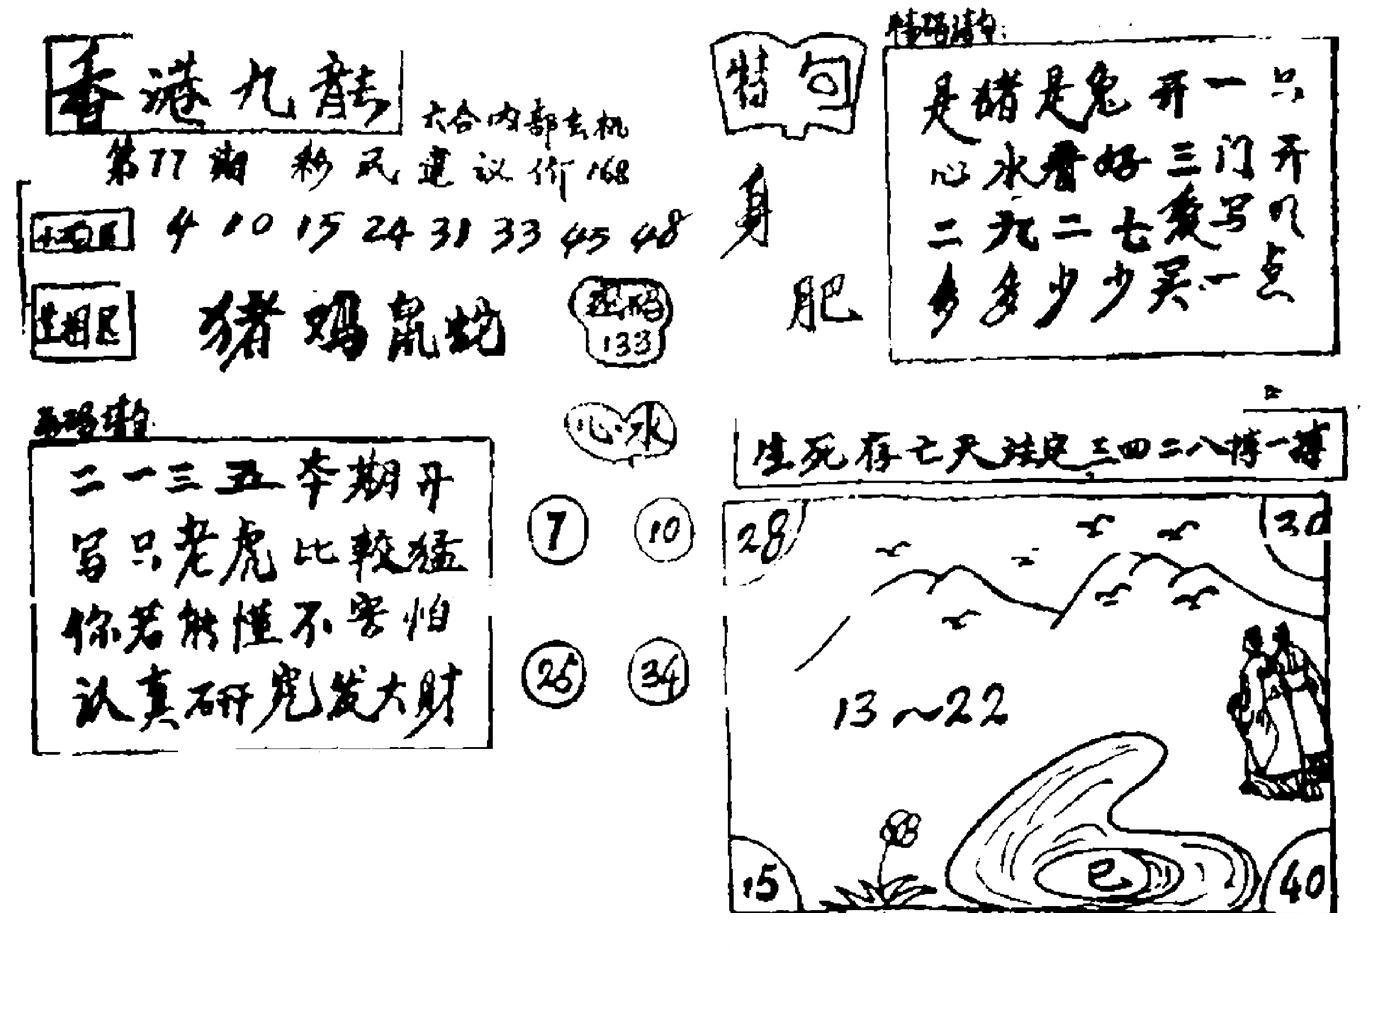 香港九龍
六合内部玄机
第77期 彩民建议价168
4 10 15 24 31 33 45 48
生肖民
猪鸡鼠蛇
133
心水
7 10
25 34
二一三五本期开
写只老虎比较猛
你若能懂不害怕
认真研究发大财
特句
身
肥
特码诗句:
是猪是兔开一只
心水看好三门开
二九二七爱写
多多少少买一点
生死存亡天注定三四二八搏一搏
28 30
13~22
巳
15 40